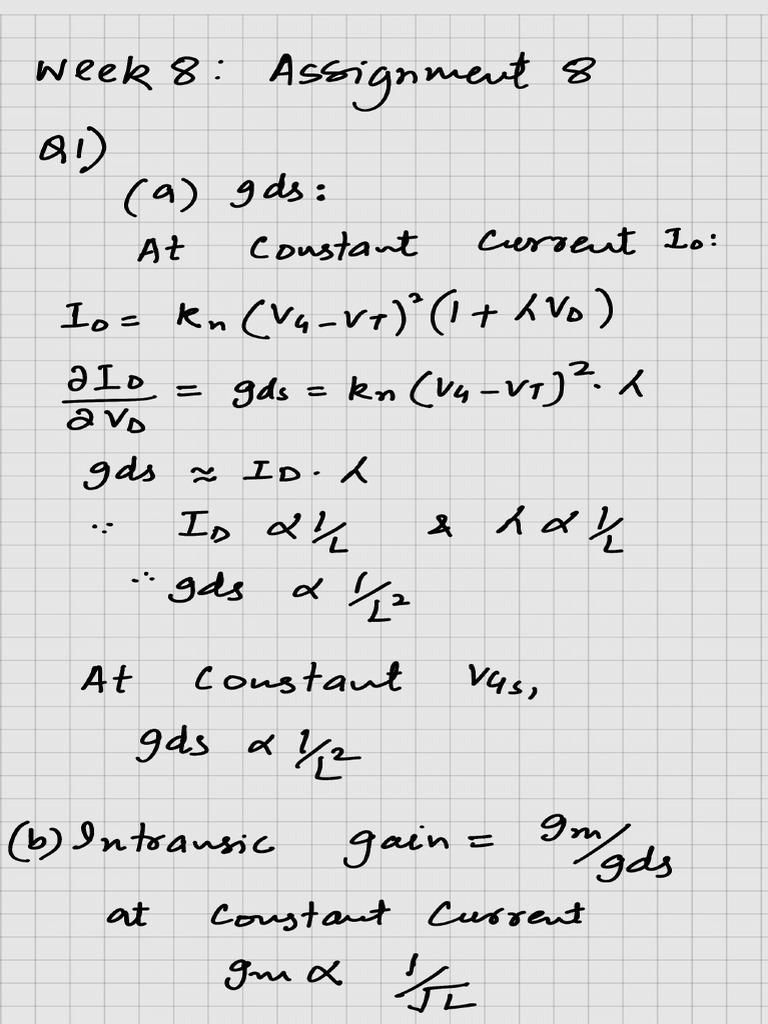 Week 8: Assignment 8
Q1)
(a) gds:
At constant current I₀:
I_D = kn (VG - VT)² (1 + λVD)
∂I_D/∂V_D = gds = kn (VG - VT)² · λ
gds ≈ I_D · λ
∵ I_D ∝ 1/L & λ ∝ 1/L
∴ gds ∝ 1/L²
At constant VGS,
gds ∝ 1/L²
(b) Intransic gain = gm/gds
at constant current
gm ∝ 1/√L